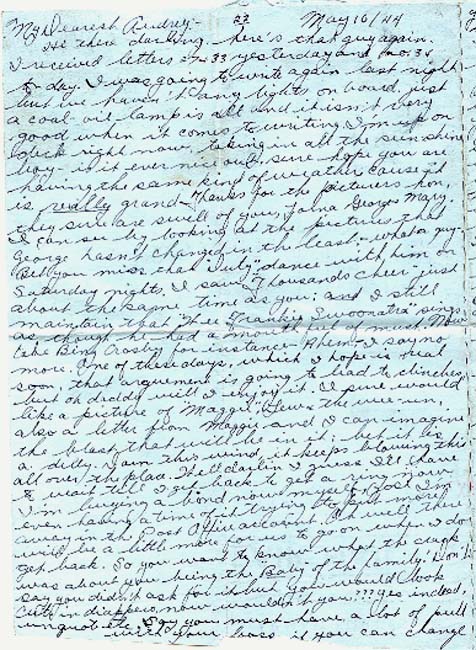 My Dearest Audrey- 23 May 16/44
Hi there darling, here's that guy again.
I received letters #33 yesterday and no. 34
to-day. I was going to write again last night
but we haven't any lights on board, just
a coal-oil lamp is all and it isn't very
good when it comes to writing. I'm up on
deck right now taking in all the sunshine
boy- is it ever nice out, sure hope you are
having the same kind of weather cause it
is really grand. Thanks for the pictures hon,
they sure are swell of you, George Mary.
I can see by looking at the pictures that
George hasn't changed in the least - what a guy-
Bet you miss that dance with him on
Saturday nights. I saw "Thousands Cheer" just
about the same time as you: and I still
maintain that "Thee" Frankie Swoonatra sings
as though he had a mouth full of mush. Now
take Bing Crosby for instance - Ahem - I say no
more. One of these days, which I hope is real
soon, that arguement is going to lead to clinches,
but oh daddy will I enjoy it. I sure would
like a picture of Maggie, the wee-un,
also a letter from Maggie and I can imagine
the blast that will be in it; bet it is
a dilly. Darn this wind, it keeps blowing this
all over the place. Well darlin I guess I'll have
to wait till I get back to get a ring now
I'm buying a bond now myself. Gosh I'm
even having a time of it trying to put more
away in the Post Office account. Oh well there
will be a little more for us to go on when I do
get back. So you want to know what the crack
was about you being the Baby of the family! Don't
say you didn't ask for it but you would look
cute in diapers, now wouldn't you??? yes indeed,
unquote. Say you must have a lot of pull
with your boss if you can change